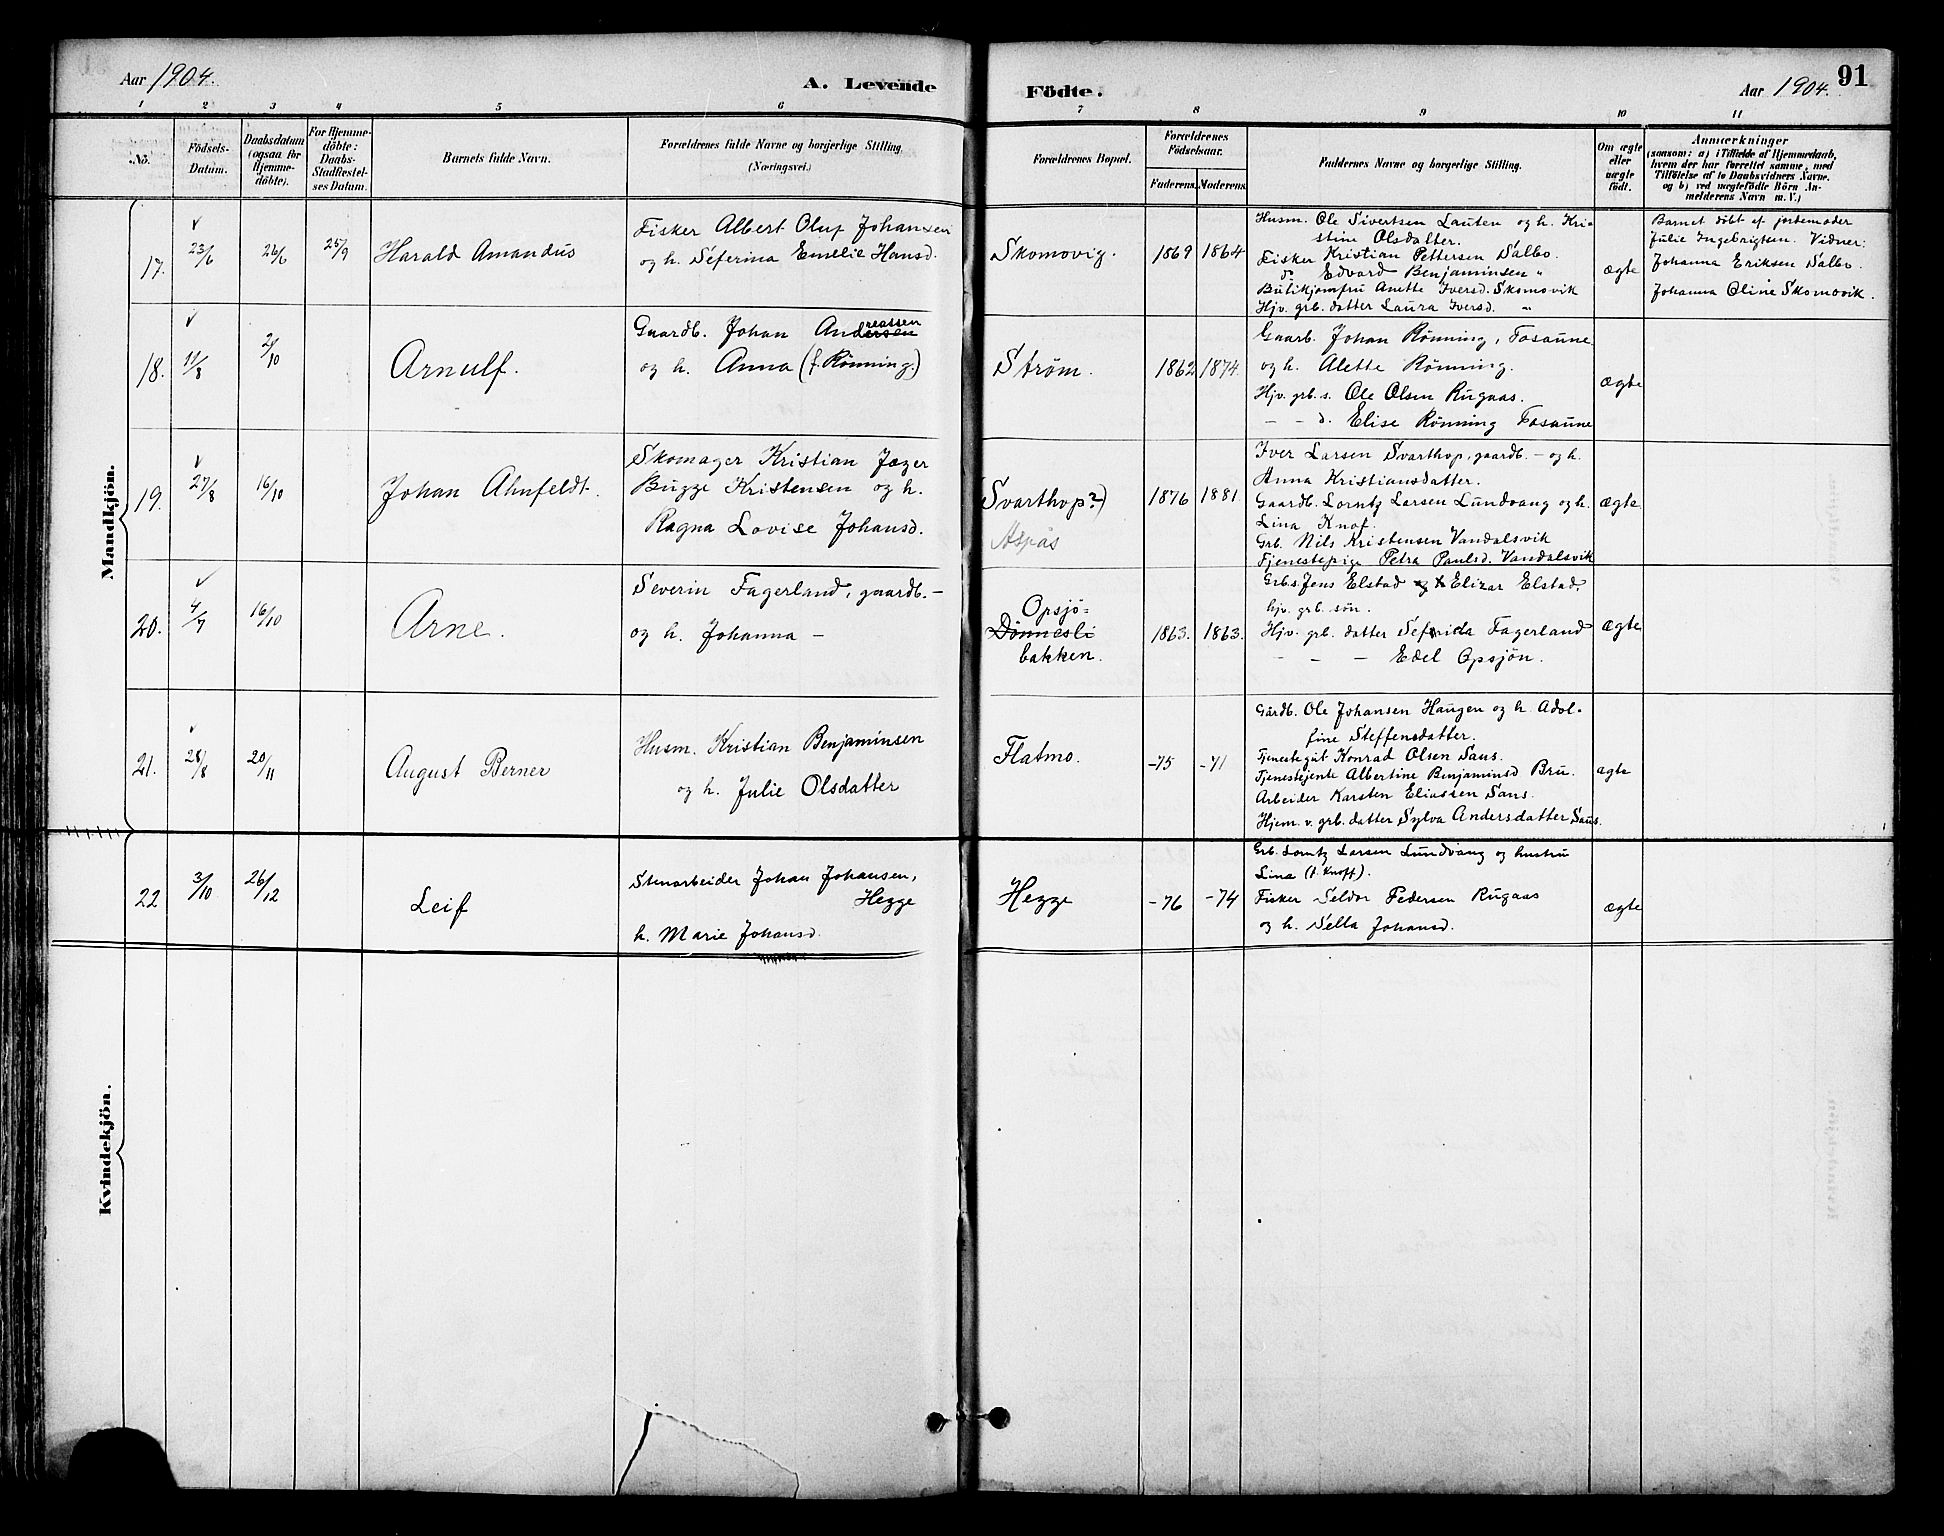 Aar 1904.
A. Levende
Födte.
Aar 1904.
91
1 2 3 4 5 6 7 8 9 10 11
No.
Födsels-
Datum.
Daabsdatum
(ogsaa for
Hjemme-
döbte).
For Hjemme-
döbte:
Daabs-
Stadfæstel-
ses Datum.
Barnets fulde Navn.
Forældrenes fulde Navne og borgerlige Stilling
(Næringsvei.)
Forældrenes Bopæl.
Forældrenes
Födselsaar.
Faderens. Moderens.
Faddernes Navne og borgerlige Stilling.
Om ægte
eller
uægte
födt.
Anmærkninger
(saasom: a) i Tilfælde af Hjemmedaab,
hvem der har forrettet samme, med
Tilföielse af to Daabsvidners Navne,
og b) ved uægtefödte Börn An-
melderens Navn m. V.)
Mandkjön.
17.
23/6
26/6
25/9
Harald Amandus
Fisker Albert Oluf Johansen
og h. Seferina Emelie Hansd.
Skomovig.
1869 1864
Husm. Ole Sivertsen Lauten og h. Kri-
stine Olsdatter.
Fisker Kristian Pettersen Salbo.
do Edvard Benjaminsen "
Butikjomfru Anette Iversd. Skomovik
Hjv. grb. datter Laura Iversd. "
ægte
Barnet döbt af jordemoder
Julie Ingebrigtsen. Vidner:
Johanna Eriksen Salbo.
Johanna Oline Skomovik.
18.
11/8
2/10
Arnulf.
Gaardb. Johan Andersen
reassen
og h. Anna (f. Rönning.)
Ström.
1862 1874.
Gaarb. Johan Rönning, Fosaune
og h. Alette Rönning.
Hjv. grb. s. Ole Olsen Rugaas.
– – d. Elise Rönning Fosaune
ægte
19.
27/8
16/10
Johan Ahnfeldt.
Skomager Kristian Jæger
Bugge Kristensen og h.
Ragna Lovise Johansd.
Svarthop?)
Aspås
1876 1881
Iver Larsen Svarthop, gaardb. – og h.
Anna Kristiansdatter.
Gaardb. Lorntz Larsen Lundvang og h.
Lina Knof.
Grb. Nils Kristensen Vandalsvik
Tjenestepige Petra Paulsd. Vandalsvik
ægte
20.
4/7
16/10
Arne.
Severin Fagerland, gaardb. –
og h. Johanna –
Opsjö-
Dönnesli
bakken.
1863. 1863.
Grb.s. Jens Elstad og Elizar Elstad,
hjv. grb. sön.
Hjv. grb. datter Sefrida Fagerland
– – – Edel Opsjön.
ægte
21.
28/8
20/11
August Berner
Husm. Kristian Benjaminsen
og h. Julie Olsdatter
Flatmo.
–75 –71
Gårdb. Ole Johansen Haugen og h. Adol-
fine Steffensdatter.
Tjenestegut Konrad Olsen Saus.
Tjenestejente Albertine Benjaminsd Bru.
Arbeider Karsten Eliassen Saus.
Hjem. v. grb. datter Sylva Andersdatter Saus.
ægte
22
3/10
26/12
Leif
Stenarbeider Johan Johansen,
Hegge
h. Marie Johansd.
Hegge
–76 –74
Grb. Lorntz Larsen Lundvang og hustru
Lina (f. Knoff).
Fisker Seldor Pedersen Rugaas
og h. Sella Johansd.
ægte
Kvindekjön.